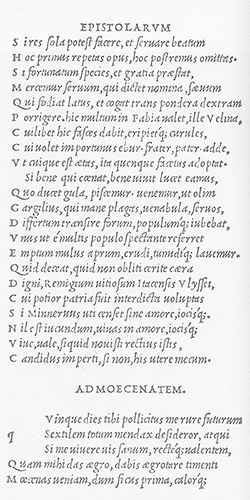 EPISTOLARVM
S i res sola potest facere, et seruare beatum
H oc primus repetas opus, hoc postremus omittas.
S i fortunatum species, et gratia præstat,
M ercemur seruum, qui dictet nomina, sæuum
Q ui fodiat latus, et cogat trans pondera dextram
P orrigere. hic multum in Fabia ualet, ille Velina,
C uilibet hic fasces dabit, eripietq; curules,
C ui uolet importunus ebur. frater, pater, adde,
V t cuique est ætas, ita quenque facetus adopta.
Si bene qui cœnat, bene uiuit lucet eamus,
Q uo ducet gula, piscemur. uenemur, ut olim
G argilius, qui mane plagas, uenabula, seruos,
D issertum transire forum, populumq; iubebat,
V nus ut è multis populo spectante referret
E mptum mulus aprum, crudi, tumidiq; lauemur.
Q uid deceat, quid non obliti cærite cæra
D igni, Remigium uitiosum Itacensis Vlyssei,
C ui potior patria fuit interdicta uoluptas
S i Mimnermus uti censet sine amore, iocisq;
N il est iucundum, uiuas in amore, iocisq;
V iue, uale, siquid nouisti rectius istis,
C andidus imperti, si non, his utere mecum.
AD MOECENATEM.
Vinque dies tibi pollicitus me rure futurum
q Sextilem totum mendax desideror, atqui
Si me uiuere uis sanum, recteq; ualentem,
Q uam mihi das ægro, dabis ægrotare timenti
M œcenas ueniam, dum ficus prima, calorq;